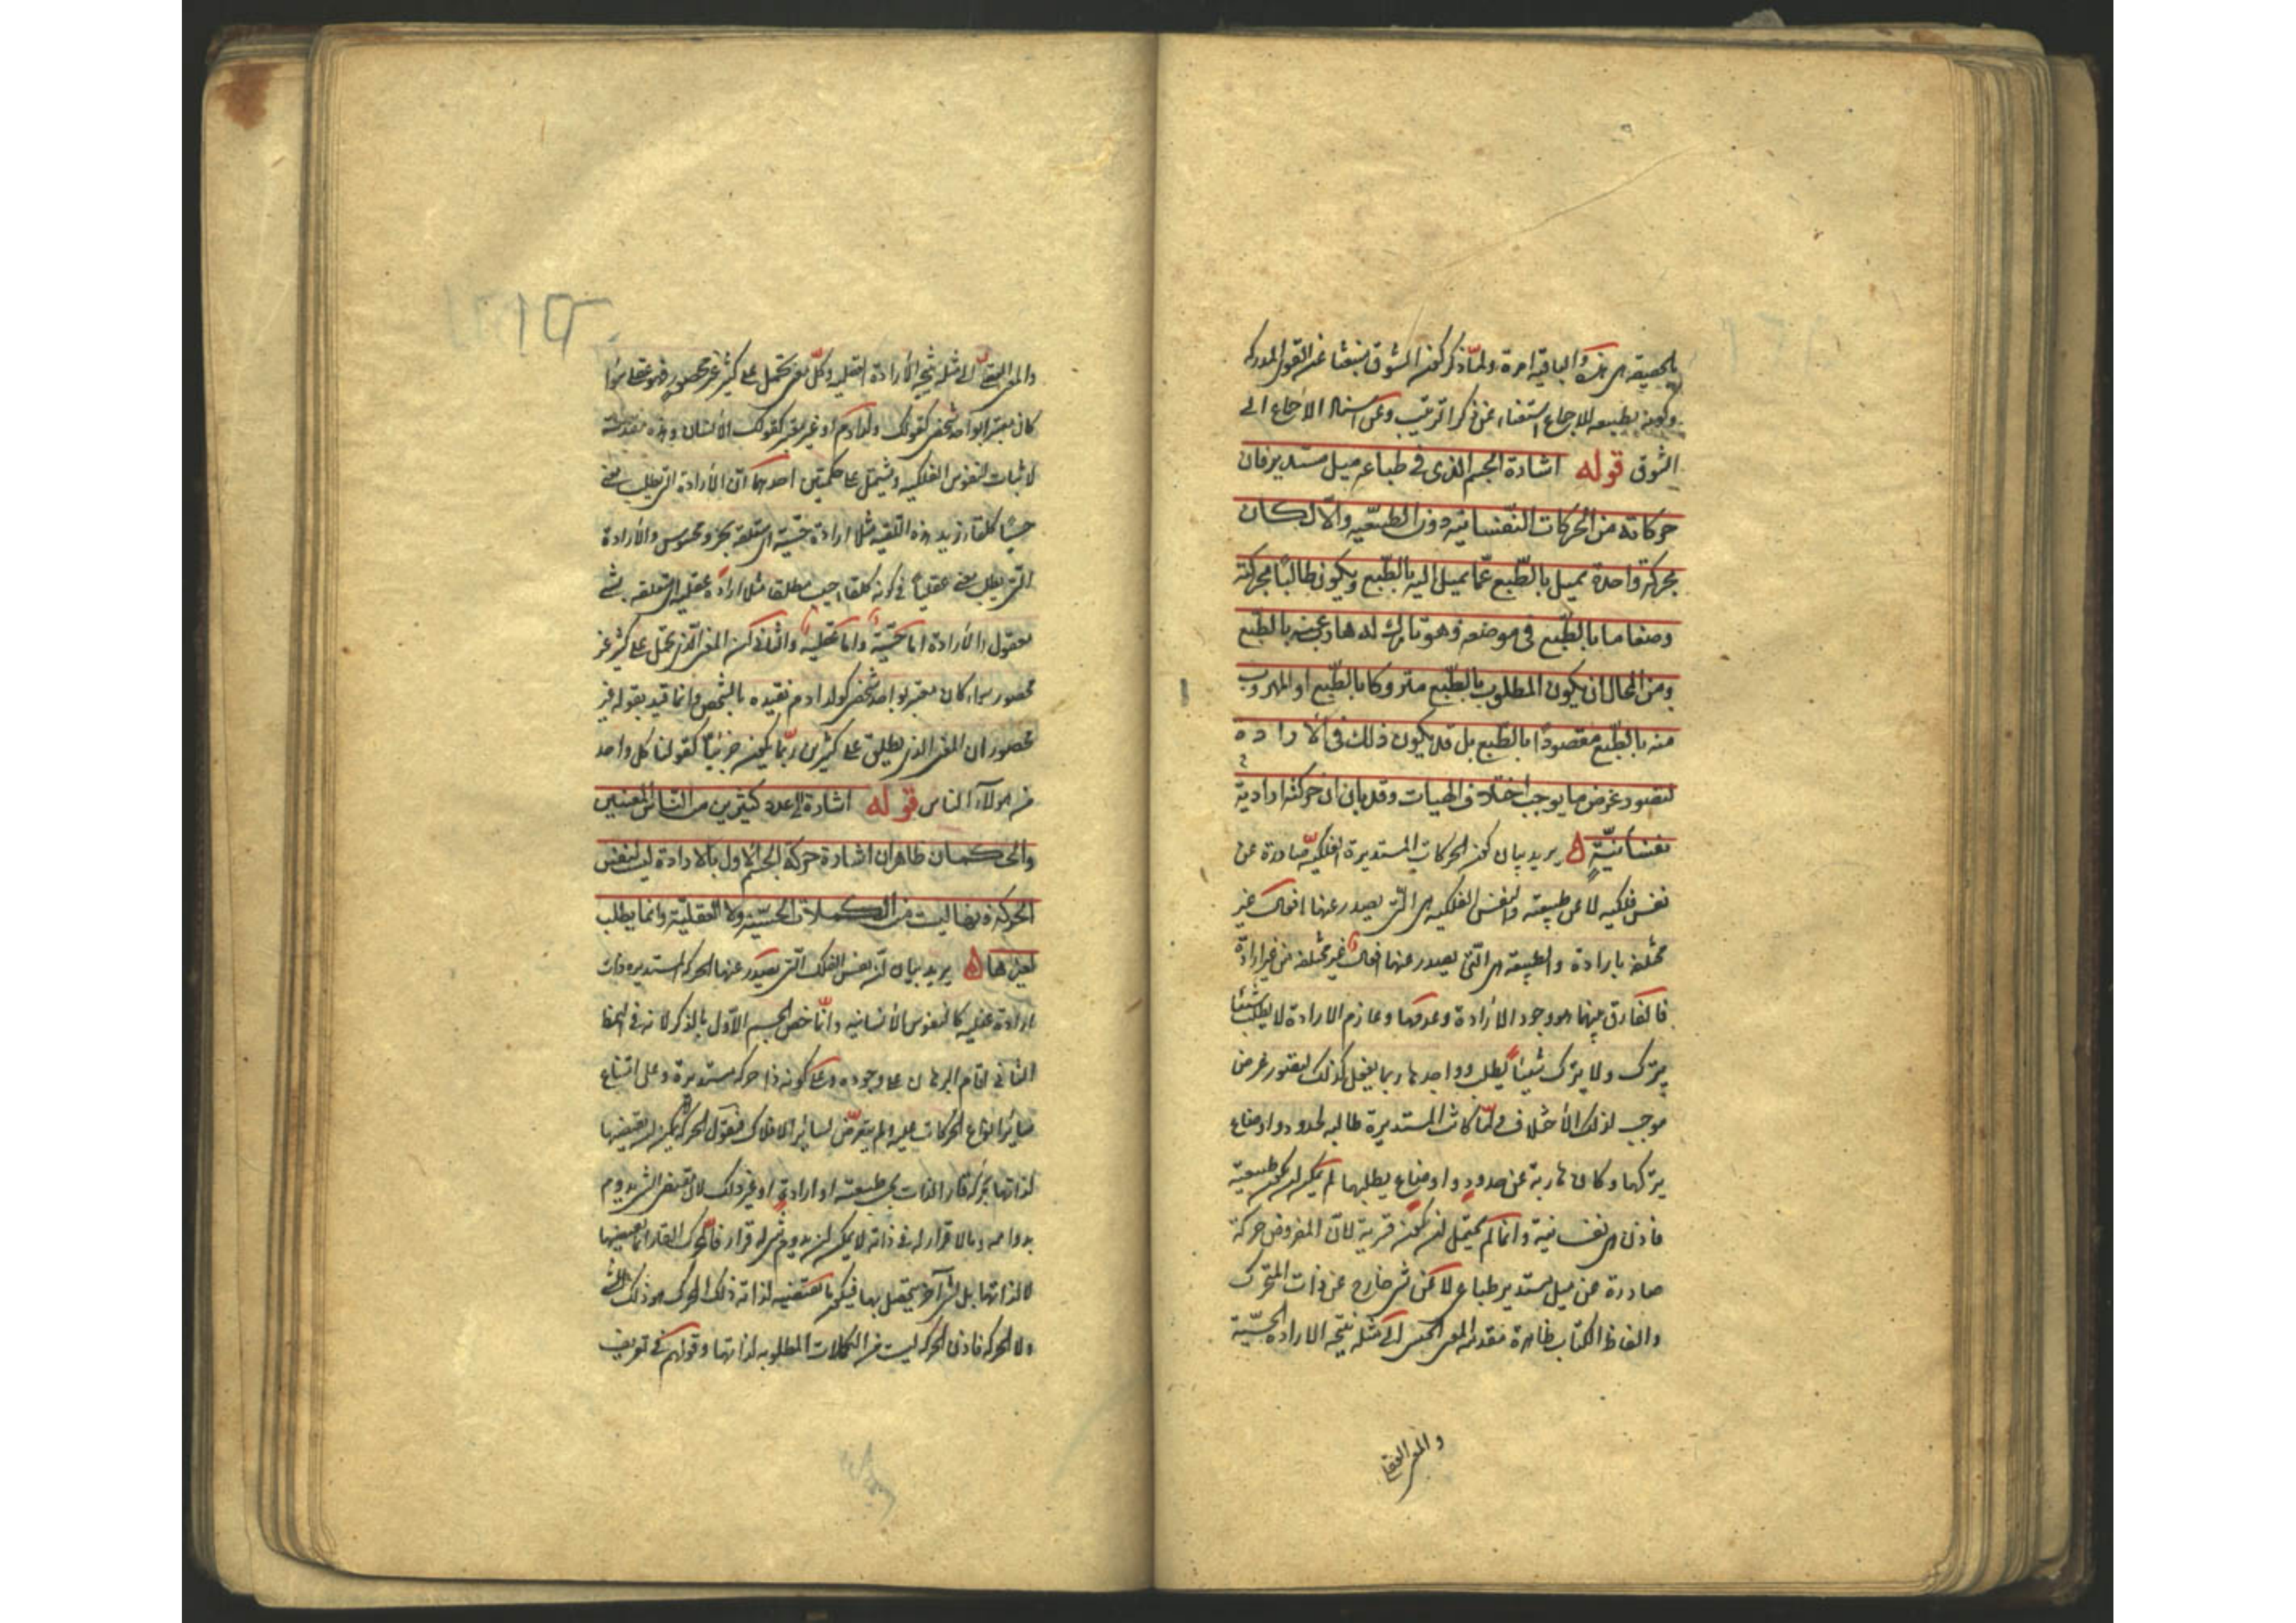 بالحقيقة هى هذه والباقية امرة ولما ذكر كون الشوق منبعثا عن القوى المدركة
وكونه بطبيعه للاجماع استغناء عن ذكر الترتيب وعن اسناد الاجماع الى
الشوق قوله اشارة الجسم الذى فى طباعه ميل مستدير فان
حركاته من الحركات النفسانية دون الطبيعية والا لكان
بحركة واحدة يميل بالطبع عما يميل اليه بالطبع ويكون طالبا بحركته
وضعا ما بالطبع فى موضعه وهو تارك له هارب عنه بالطبع
ومن المحال ان يكون المطلوب بالطبع متروكا بالطبع او المهروب
منه بالطبع مقصودا بالطبع بل قد يكون ذلك فى الارادة
لتصور غرض ما يوجب اختلاف الهيات وقد بان ان حركته ارادية
نفسانية ه يريد بيان كون الحركات المستديرة الفلكية صادرة عن
نفس فلكيه لا عن طبيعة والنفس الفلكيه هى التى يصدر عنها افعال غير
مختلفة بارادة والطبيعة هى التى يصدر عنها افعال غير مختلفة من غير ارادة
فالفارق بينهما هو وجود الارادة وعدمها وعادم الارادة لا يطلب شيئا
يترك ولا يترك شيئا يطلب وواجدها ربما يفعل كذلك لتصور غرض
موجب لذلك الاختلاف ولما كانت المستديرة طالبه لحدود واوضاع
يتركها وكان هاربة عن حدود واوضاع يطلبها لم يمكن ان يكون طبيعية
فاذن هى نفسانية وانما لم يحتمل ان يكون قسرية لان المفروض حركة
صادرة عن ميل مستدير طباعى لا عن شى خارج عن ذات المتحرك
والفاظ الكتاب ظاهرة مقدمه المعنى الحسى الى مثله يتجه الارادة الحسية
والمعنى العقلى
والمعنى العقلى الى مثله يتجه الارادة العقليه وكل معنى يحتمل على كثير غير محصور فهو عقلى سواء
كان معتبرا بواحد شخصى كقولك ولد ادم او غير معتبر كقولك الانسان وهذه مقدمة
لاثبات النفوس الفلكيه ويشتمل على حكمين احدهما ان الارادة التى يطلب معنى
حسيا كلقاء زيد هذه اللقيه مثلا ارادة حسية اى متعلقة بجزو محسوس والارادة
التى يطلب معنى عقليا فى كونه كلقاء حبيب مطلقا مثلا ارادة عقليه اى متعلقه بشى
معقول والارادة اما حسية واما عقلية والثانى ان المعنى الذى يحتمل على كثير غير
محصور سواء كان معتبرا بواحد شخصى كولد ادم مقيده بالشخص وانما قيد بقوله غير
محصور لان المعنى الذى يطلق على كثيرين ربما يكون جزئيا كقولنا كل واحد
من هولاء الناس قوله اشارة الى عدد كثيرين من الناس المعينين
والحكمان ظاهران اشارة حركة الجسم الاول بالارادة ليس لنفس
الحركة فانها ليست من الكمالات الحسية ولا العقلية وانما يطلب
لغيرها ه يريد بيان ان نفس الفلك التى يصدر عنها الحركة المستديره ذات
ارادة عقلية كالنفوس الانسانيه وانما خص الجسم الاول بالذكر لانه فى النمط
الثانى اقام البرهان على وجوده وعلى كونه ذا حركة مستديرة وعلى امتناع
سائر انواع الحركات عليه ولم يتعرض لسائر الافلاك فنقول الحركة لا يمكن ان يقتضيها
لذاتها محرك قار الذات بحسب طبيعة او ارادة او غير ذلك لان مقتضى الشى يدوم
بدوامه وما لا قرار له فى ذاته لا يمكن ان يدوم بشى له قرار فالمحرك القار انما يقتضيها
لا لذاتها بل لشى آخر يتحصل بها فيكون ما يقتضيه لذاته ذلك المحرك هو ذلك الشى
ولا الحركة فاذن الحركة ليست من الكمالات المطلوبه لذاتها وقولهم فى تعريف